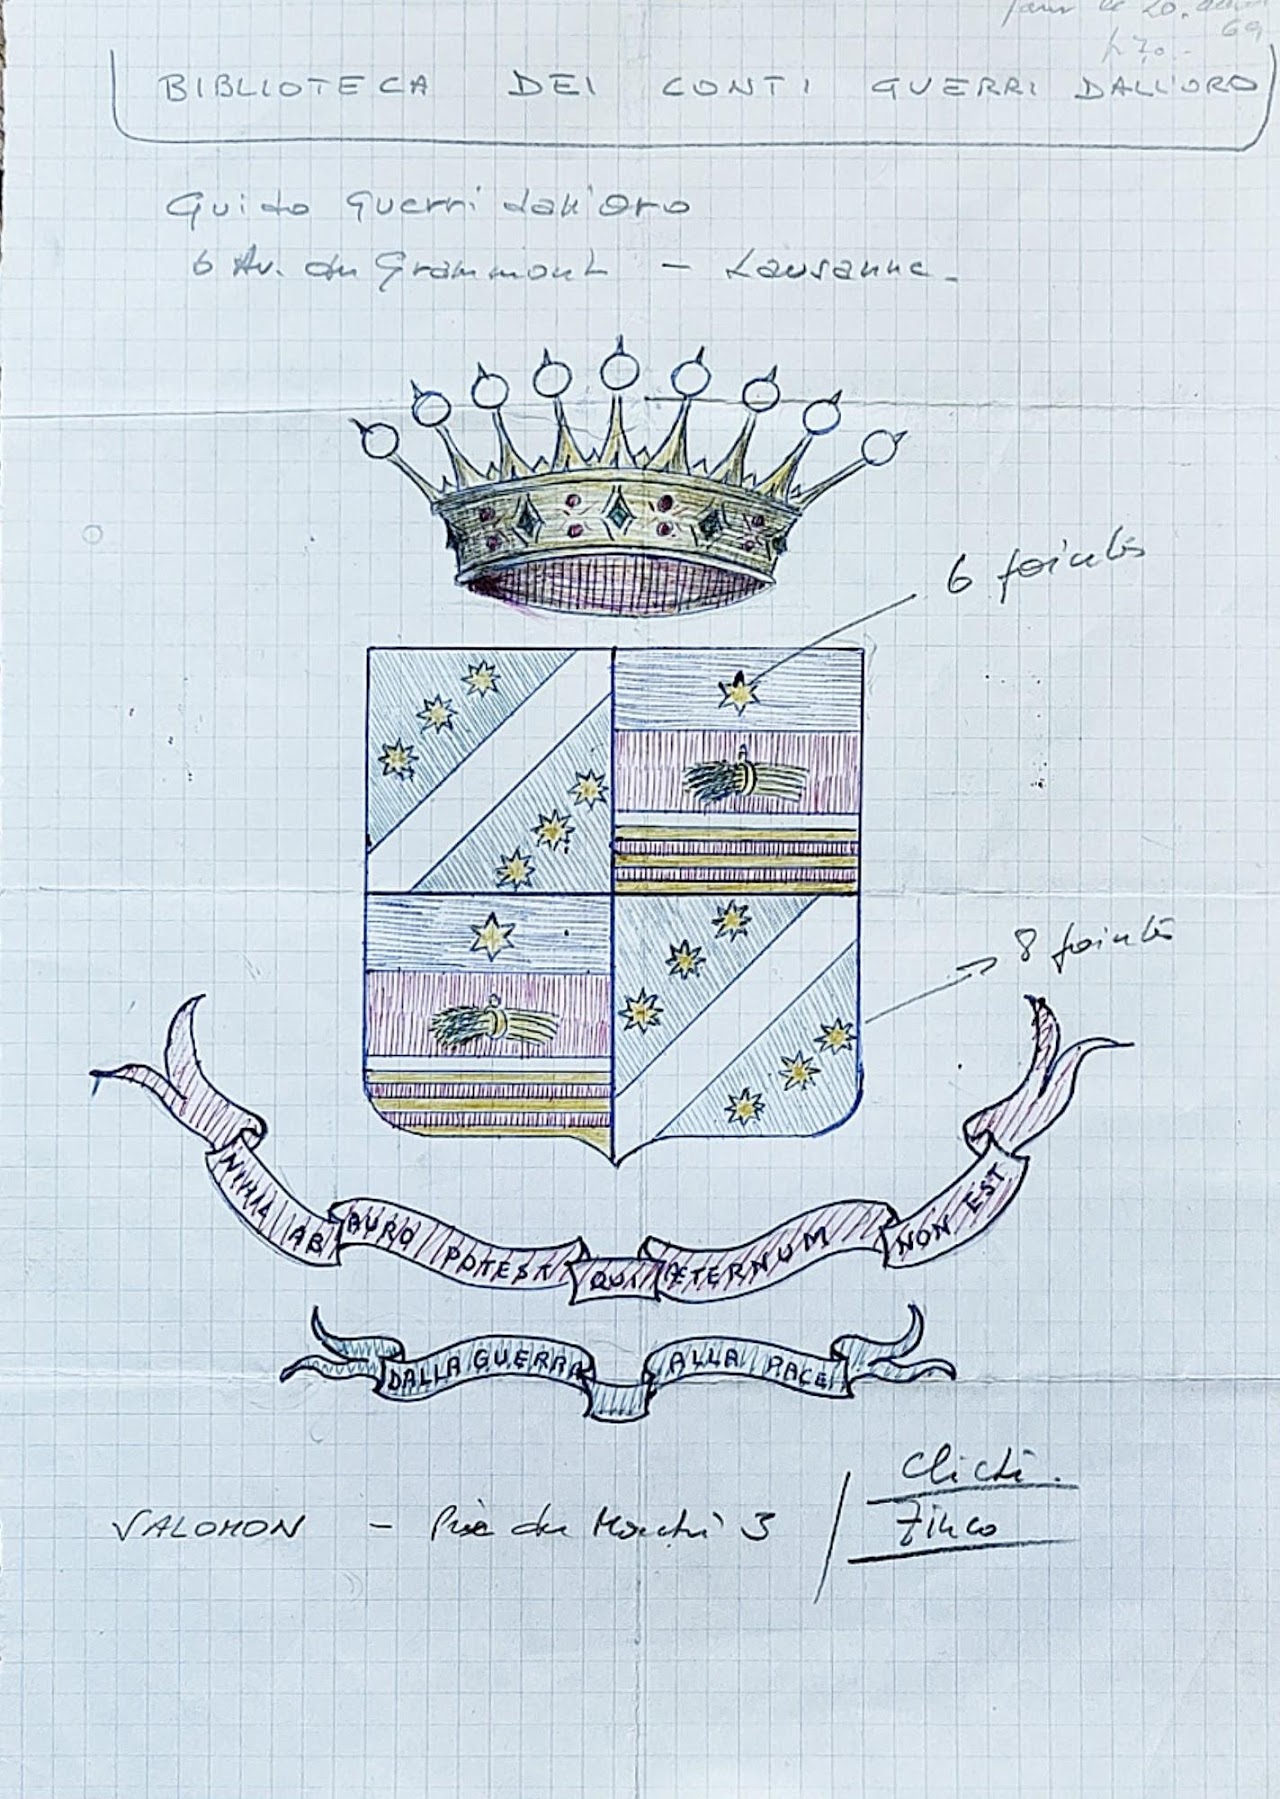 Pour le 20.
69
470.-
BIBLIOTECA DEI CONTI GUERRI DALL'ORO
Guido Guerri dall'Oro
6 Av. du Grammont - Lausanne.
6 pointes
8 pointes
NIHIL AB AURO POTEST QUI ÆTERNUM NON EST
DALLA GUERRA ALLA PACE
VALOMON - du 3
Cliché.
Zinco